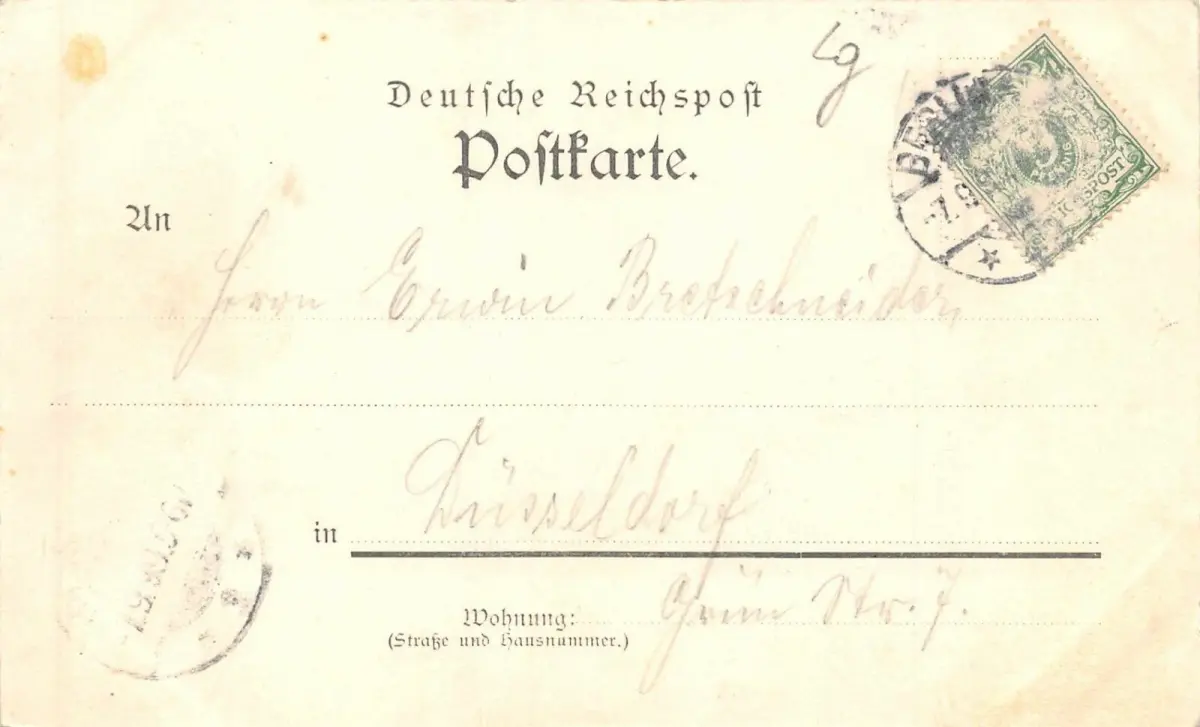 Lg
Deutsche Reichspost
Postkarte.
BERLIN
REICHSPOST
An
Herrn Erwin Bretschneider,
in Düsseldorf
Wohnung: Grün Str. 7.
(Straße und Hausnummer.)